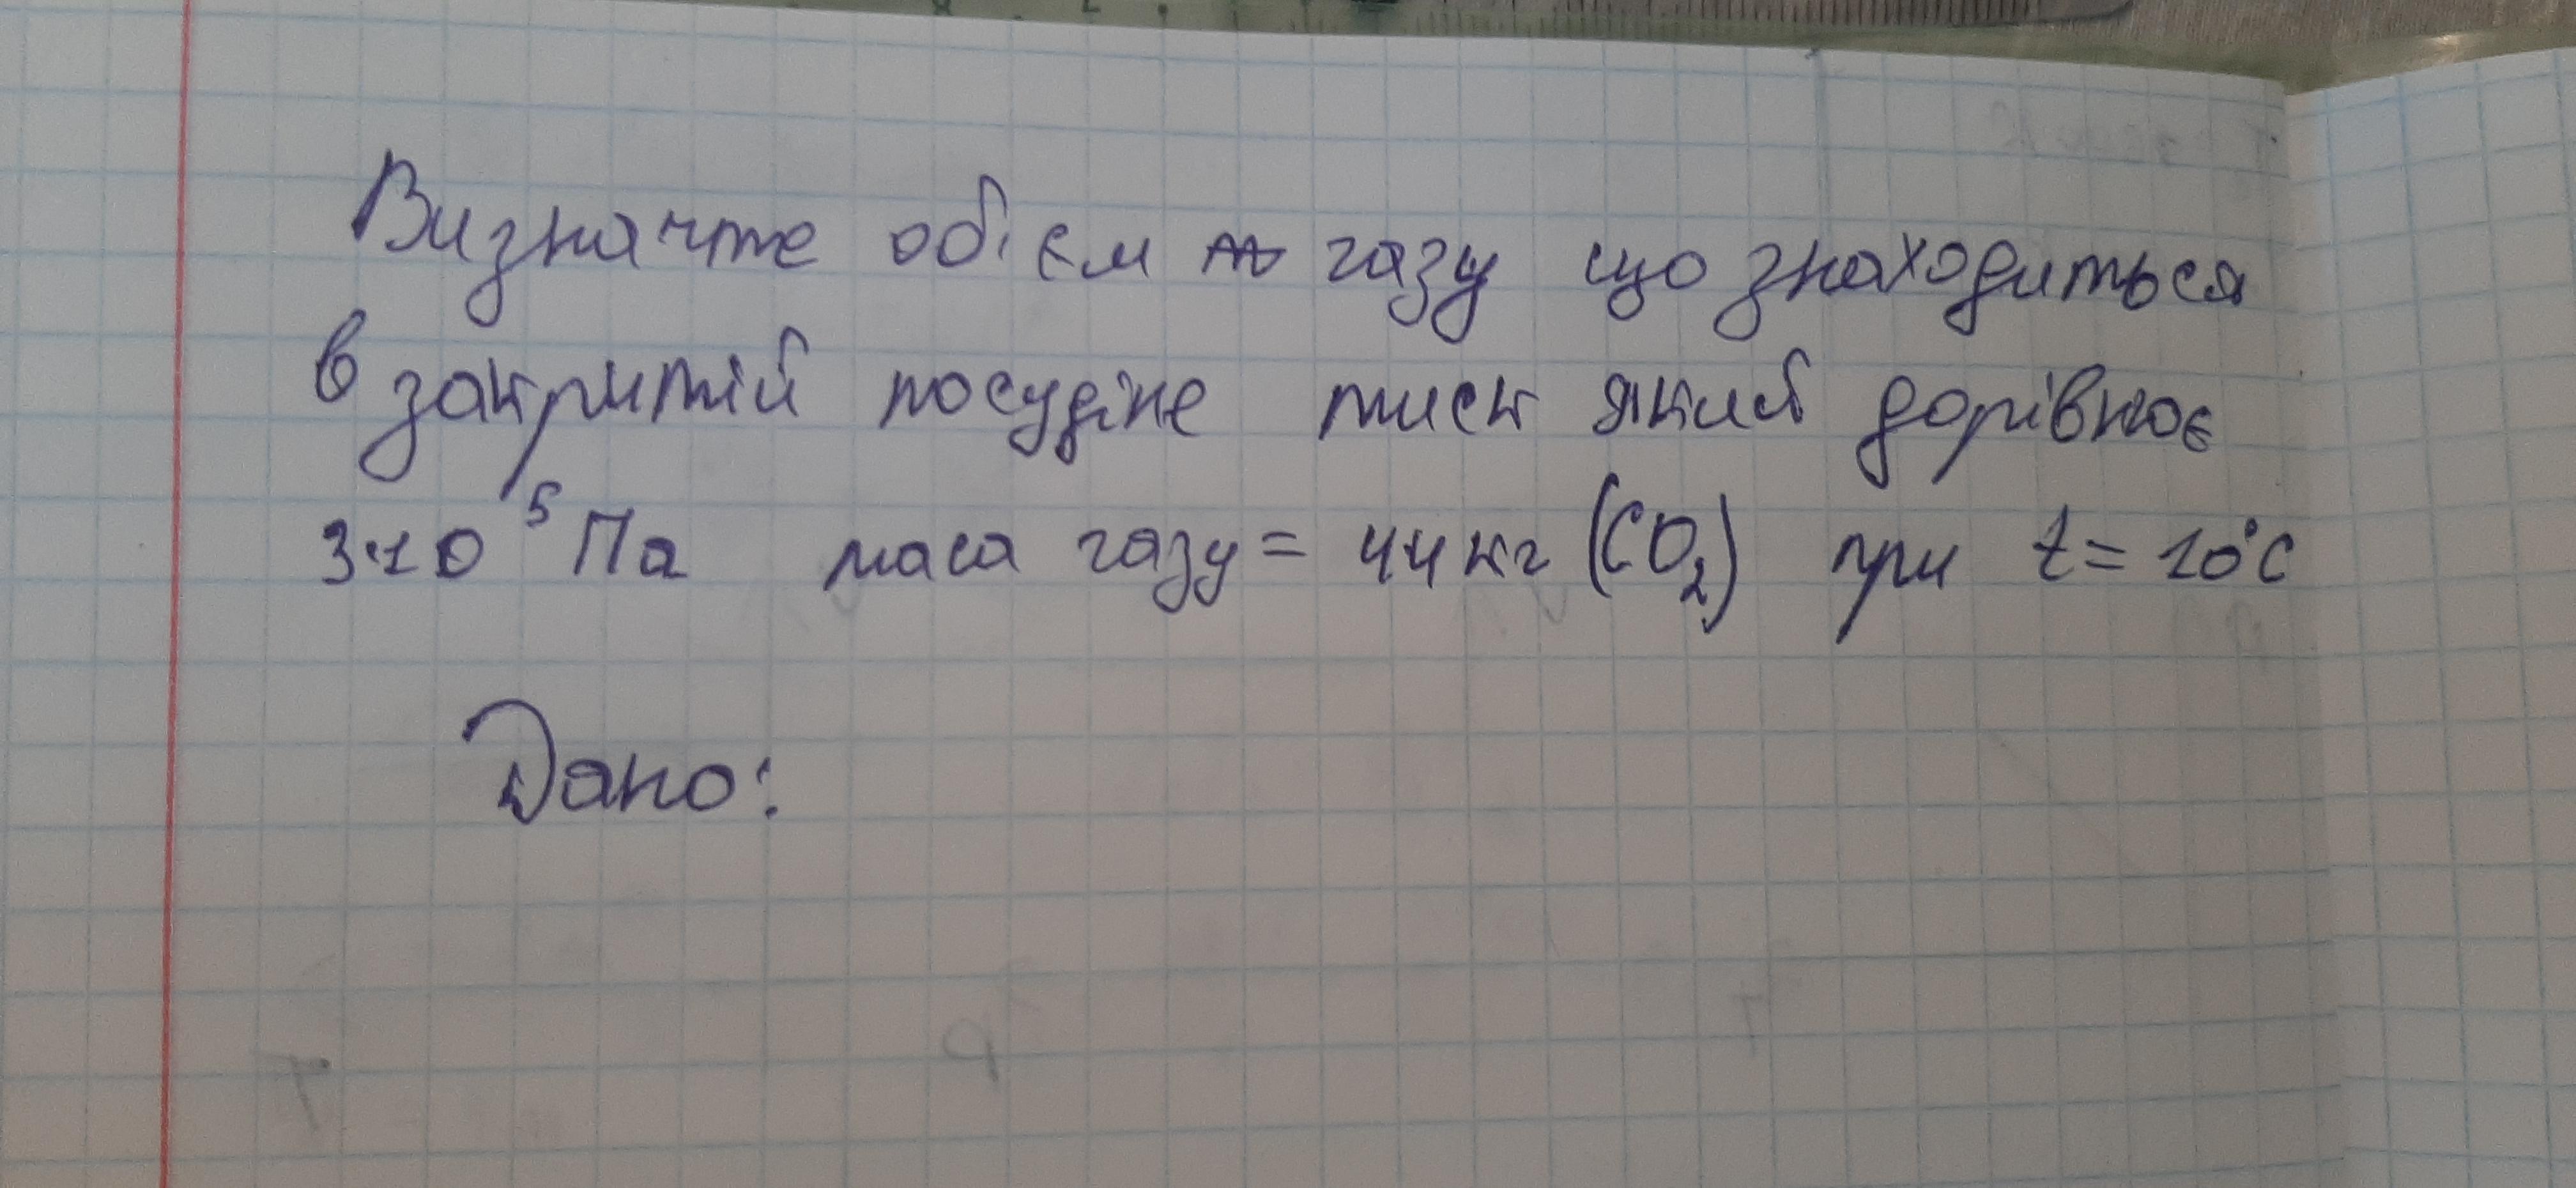 Визначте об'єм газу що знаходиться
в закритій посудіне тиск який дорівнює
3·10⁵ Па маса газу = 44 кг (CO₂) при t = 10°C
Дано: